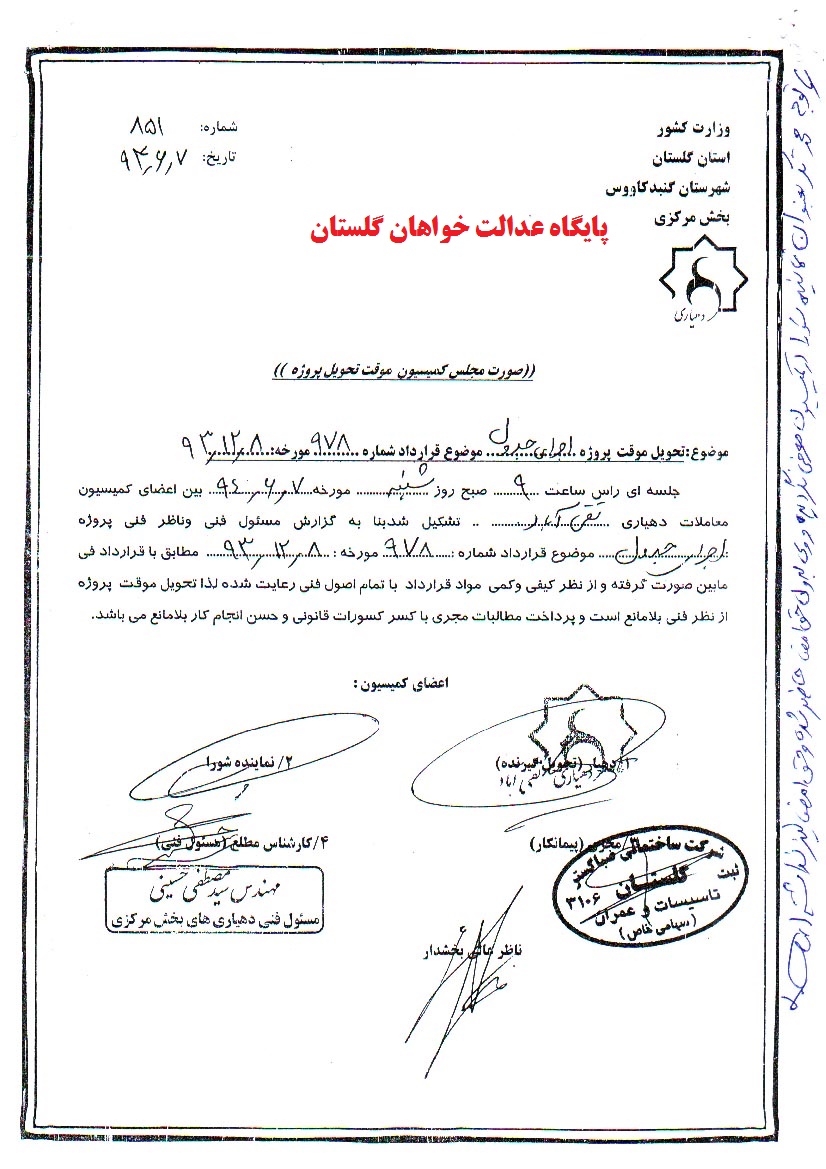 وزارت کشور
استان گلستان
شهرستان گنبدکاووس
بخش مرکزی
دهیاری
شماره: ۸۵۱
تاریخ: ۹۴٫۶٫۷
پایگاه عدالت خواهان گلستان
((صورت مجلس کمیسیون موقت تحویل پروژه ))
موضوع:تحویل موقت پروژه ....اجرای جدول.... موضوع قرارداد شماره ...۹۷۸... مورخه:...۹۳٫۱۲٫۸...
جلسه ای راس ساعت ...۹... صبح روز ...شنبه... مورخه...۹۴٫۶٫۷... بین اعضای کمیسیون
معاملات دهیاری ...تقی آباد... .. تشکیل شدبنا به گزارش مسئول فنی وناظر فنی پروژه
:...اجرای جدول... موضوع قرارداد شماره :...۹۷۸... مورخه :...۹۳٫۱۲٫۸... مطابق با قرارداد فی
مابین صورت گرفته و از نظر کیفی وکمی مواد قرارداد با تمام اصول فنی رعایت شده لذا تحویل موقت پروژه
از نظر فنی بلامانع است و پرداخت مطالبات مجری با کسر کسورات قانونی و حسن انجام کار بلامانع می باشد.
اعضای کمیسیون :
۱/دهیار (تحویل گیرنده)
۲/ نماینده شورا
۳/مجری (پیمانکار)
۴/کارشناس مطلع (مسئول فنی)
شرکت ساختمانی صباگستر
گلستان
ثبت ۳۱۰۶
تاسیسات و عمران
(سهامی خاص)
مهندس سید مصطفی حسینی
مسئول فنی دهیاری های بخش مرکزی
ناظر عالی بخشدار